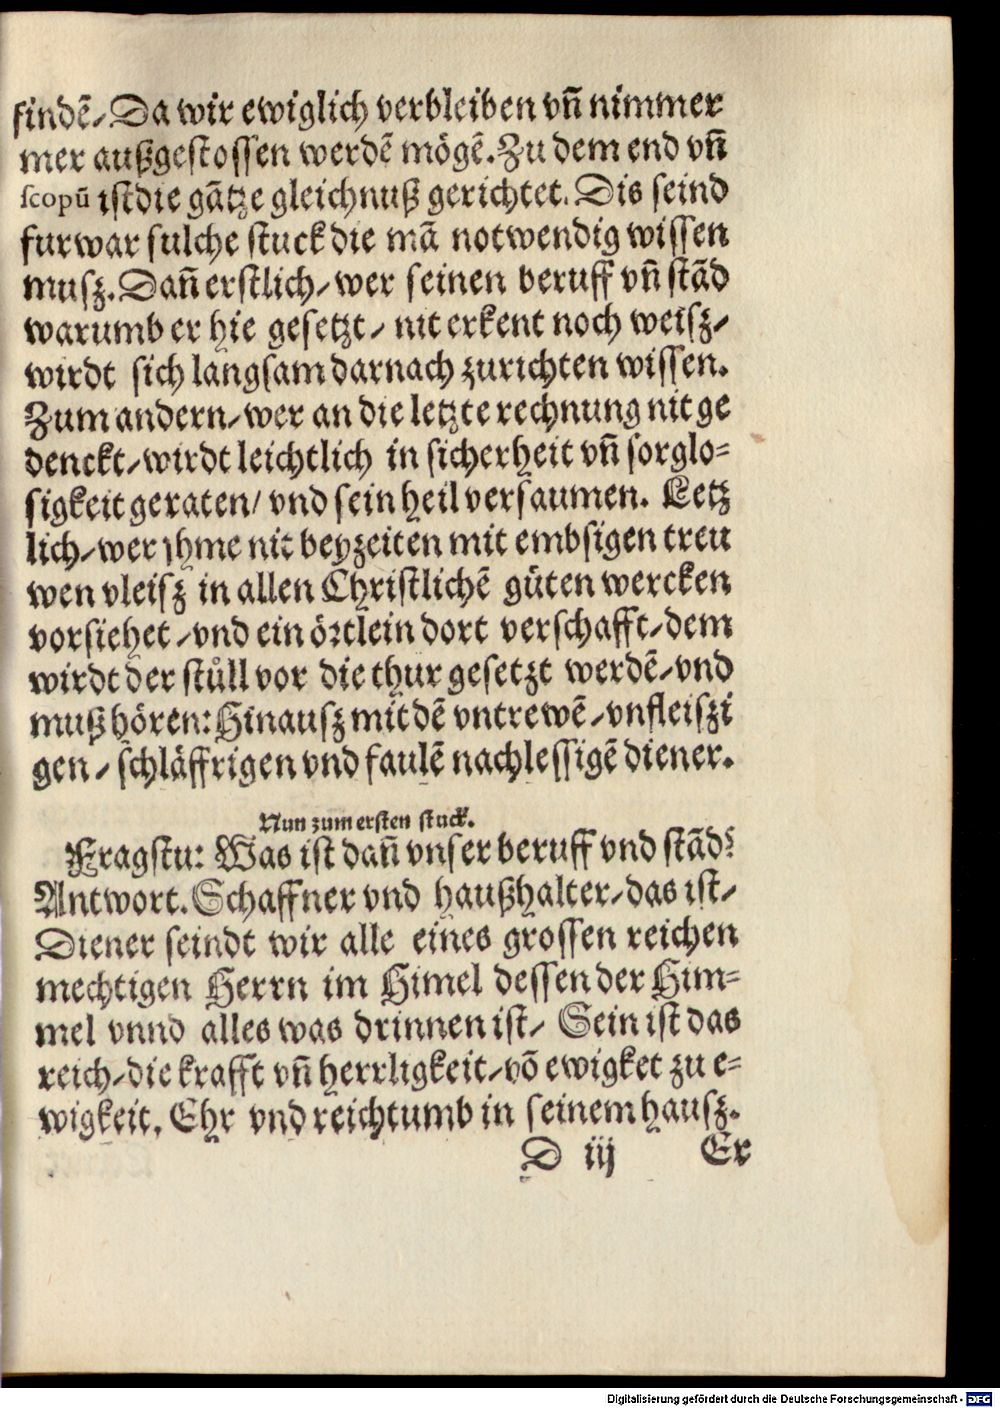 findẽ/ Da wir ewiglich verbleiben vñ nimmer
mer außgestossen werdẽ mögẽ. Zu dem end vñ
scopũ ist die gãtze gleichnuß gerichtet. Dis seind
furwar sulche stuck die mã notwendig wissen
musz. Dañ erstlich/ wer seinen beruff vñ stãd
warumb er hie gesetzt/ nit erkent noch weisz/
wirdt sich langsam darnach zurichten wissen.
Zum andern/ wer an die letzte rechnung nit ge
denckt/ wirdt leichtlich in sicherheit vñ sorglo-
sigkeit geraten/ vnd sein heil versaumen. Letz
lich/ wer yhme nit beyzeiten mit embsigen treu
wen vleisz in allen Christlichẽ gůten wercken
vorsiehet/ vnd ein örtlein dort verschafft/ dem
wirdt der stůll vor die thur gesetzt werdẽ/ vnd
muß hören: Hinausz mit dẽ vntrewẽ/ vnfleiszi
gen/ schläffrigen vnd faulẽ nachlessigẽ diener.
Nun zum ersten stuck.
Fragstu: Was ist dañ vnser beruff vnd stãd?
Antwort. Schaffner vnd haußhalter/ das ist/
Diener seindt wir alle eines grossen reichen
mechtigen Herrn im Himel dessen der Him-
mel vnnd alles was drinnen ist/ Sein ist das
reich/ die krafft vñ herrligkeit/ võ ewigket zu e-
wigkeit, Ehr vnd reichtumb in seinem hausz.
D iij Er
Digitalisierung gefördert durch die Deutsche Forschungsgemeinschaft - DFG